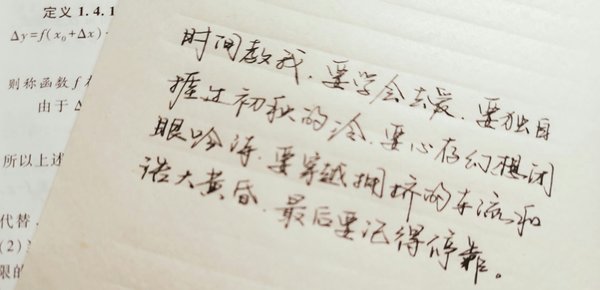 定义 1.4.1
Δy=f(x₀+Δx)
则称函数 f
由于 Δ
所以上述
代替
(2)
限的
时间教我，要学会去爱，要独自
捱过初秋的冷，要心存幻想闭
眼吟诗，要穿越拥挤的车流和
诺大黄昏，最后要记得停靠。